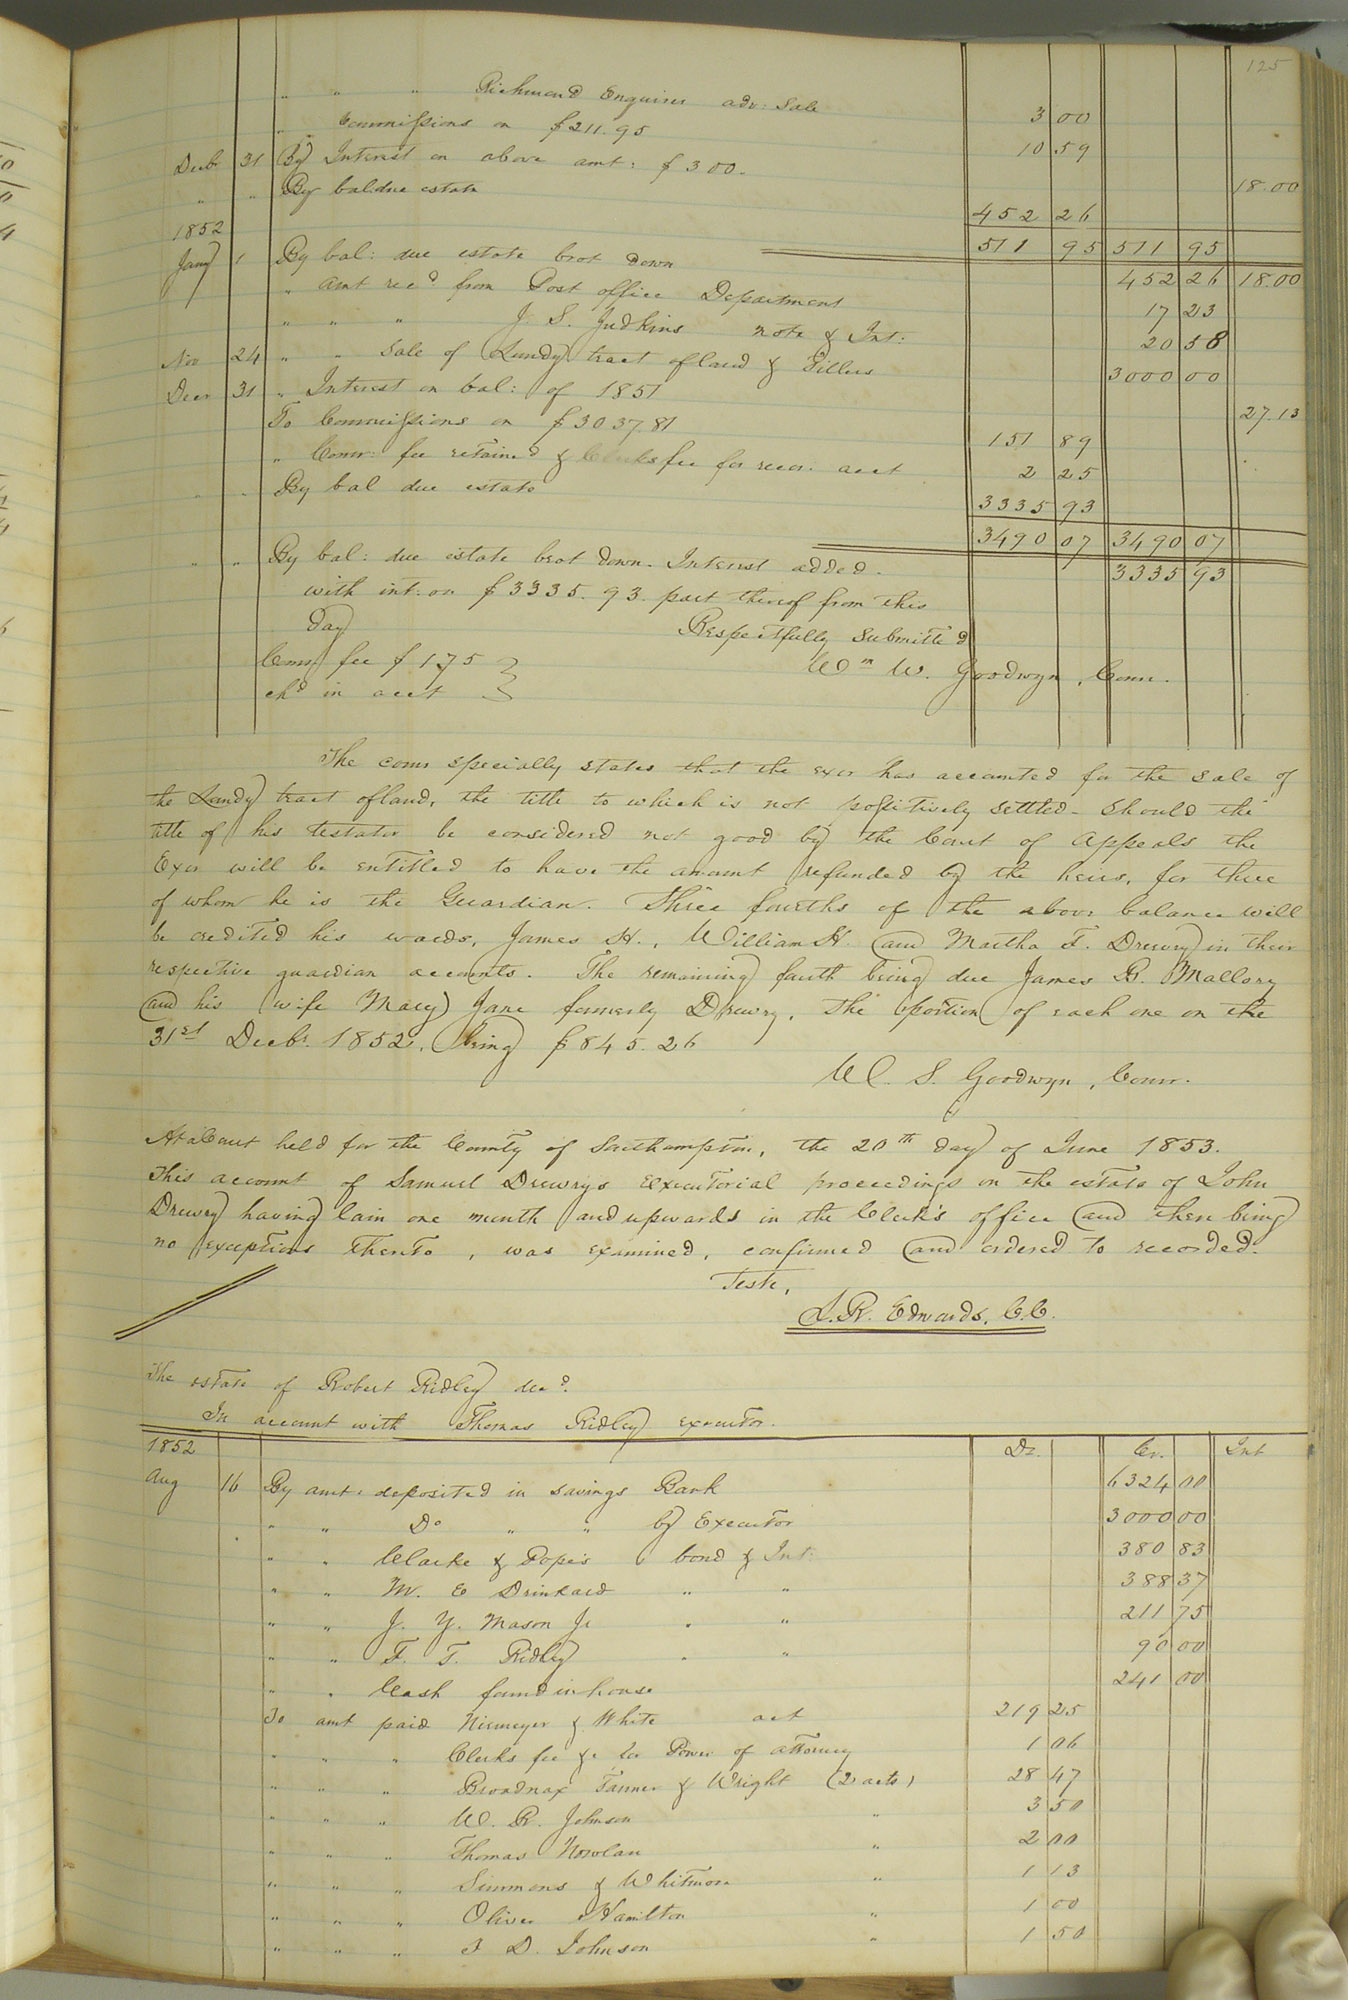 125
" " " Richmond Enquirer adv: Sale 3 00
" " Commissions on $211.95 10 59
Decb 31 By Interest on above amt: $300. 18.00
" " By bal: due estate 452 26
1852 511 95 511 95
Jany 1 By bal: due estate brot down 452 26 18.00
" amt recd from Post office Department 17 23
" " " J. S. Judkins note & Int: 20 58
Nov 24 " " Sale of Lundy tract of land & Fillers 3000 00
Decr 31 " Interest on bal: of 1851 27.13
To Commissions on $3037.81 151 89
" Comr: fee retained & Clerks fee for recor. acct 2 25
" " By bal due estate 3335 93
3490 07 3490 07
" " By bal: due estate brot down. Interest added. 3335 93
with int: on $3335.93 part thereof from this
day Respectfully Submitted
Comr fee $175 Wm W. Goodwyn, Comr.
chd in acct
The comr specially states that the exor has accounted for the sale of
the Lundy tract of land, the title to which is not positively settled - Should the
title of his testator be considered not good by the Court of Appeals the
Exor will be entitled to have the amount refunded by the heirs, for three
of whom he is the Guardian. Three fourths of the above balance will
be credited his wards, James H., William H. and Martha F. Drewry in their
respective guardian accounts. The remaining fourth being due James B. Mallory
and his wife Mary Jane formerly Drewry. The portion of each one on the
31st Decbr. 1852, being $845.26
W. S. Goodwyn, Comr.
At a Court held for the County of Southampton, the 20th day of June 1853.
This account of Samuel Drewrys executorial proceedings on the estate of John
Drewry having lain one month and upwards in the Clerk's office and there being
no exceptions thereto, was examined, confirmed and ordered to recorded.
Teste,
L. R. Edwards, C.C.
The estate of Robert Ridley decd.
In account with Thomas Ridley executor.
1852 Dr. Cr. Int
Aug 16 By amt: deposited in savings Bank 6324 00
" " Do " " by Executor 3000 00
" " Clarke & Pope's bond & Int: 380 83
" " M. E Drinkard " " 388 37
" " J. Y. Mason Jr " " 211 75
" " F. T. Ridley " " 90 00
" " Cash found in house 241 00
To amt paid Niemeyer & White act 219 25
" " " Clerks fee &c for Power of attorney 1 06
" " " Broadnax Tanner & Wright (2 acts) 28 47
" " " W. R. Johnson " 3 50
" " " Thomas Nowlan " 2 00
" " " Simmons & Whitmore " 1 13
" " " Oliver Hamilton " 1 00
" " " J D. Johnson " 1 50